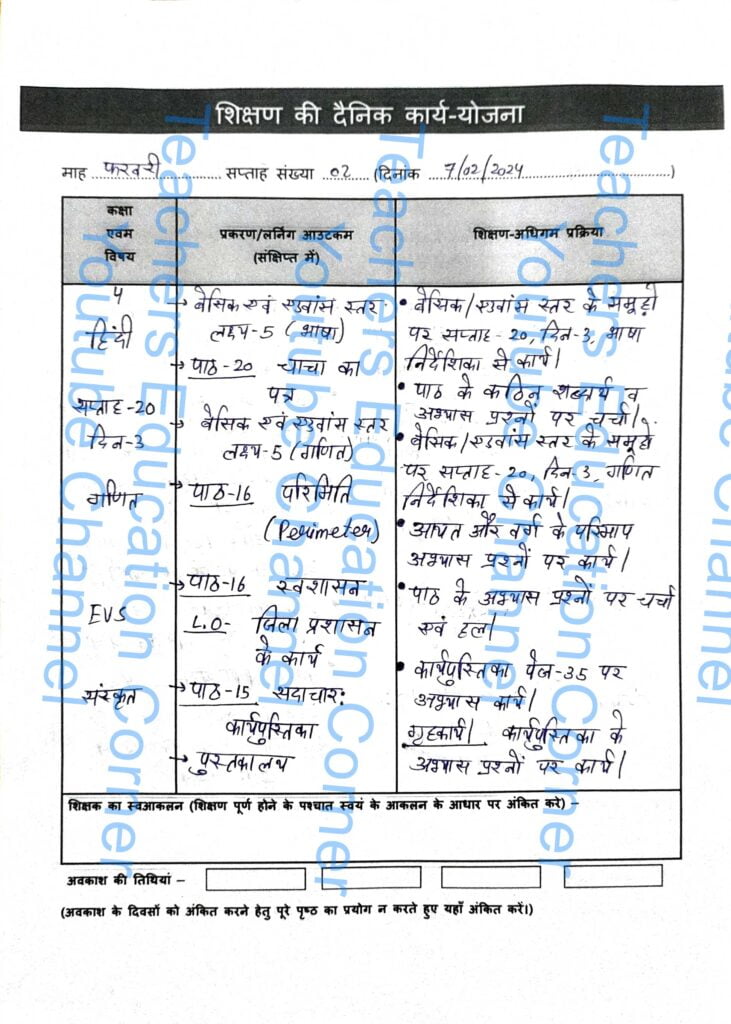 शिक्षण की दैनिक कार्य-योजना
माह फरवरी सप्ताह संख्या 02 (दिनांक 7/02/2024)
कक्षा
एवम
विषय
प्रकरण/लर्निंग आउटकम
(संक्षिप्त में)
शिक्षण-अधिगम प्रक्रिया
4
हिंदी
सप्ताह-20
दिन-3
गणित
EVS
संस्कृत
→ बेसिक एवं एडवांस स्तर
लक्ष्य-5 (भाषा)
→ पाठ-20 चाचा का
पत्र
→ बेसिक एवं एडवांस स्तर
लक्ष्य-5 (गणित)
→ पाठ-16 परिमिति
(Perimeter)
→ पाठ-16 स्वशासन
L.O- जिला प्रशासन
के कार्य
→ पाठ-15 सदाचार:
कार्यपुस्तिका
→ पुस्तकालय
• बेसिक/एडवांस स्तर के समूहों
पर सप्ताह-20, दिन-3, भाषा
निर्देशिका से कार्य।
• पाठ के कठिन शब्दार्थ व
अभ्यास प्रश्नों पर चर्चा।
• बेसिक/एडवांस स्तर के समूहों
पर सप्ताह-20, दिन-3, गणित
निर्देशिका से कार्य।
• आयत और वर्ग के परिमाप
अभ्यास प्रश्नों पर कार्य।
• पाठ के अभ्यास प्रश्नों पर चर्चा
एवं हल।
• कार्यपुस्तिका पेज-35 पर
अभ्यास कार्य।
गृहकार्य। कार्यपुस्तिका के
अभ्यास प्रश्नों पर कार्य।
शिक्षक का स्वआकलन (शिक्षण पूर्ण होने के पश्चात स्वयं के आकलन के आधार पर अंकित करे) –
अवकाश की तिथियां –
(अवकाश के दिवसों को अंकित करने हेतु पूरे पृष्ठ का प्रयोग न करते हुए यहाँ अंकित करें।)
Teachers Education Corner
Youtube Channel
Teachers Education Corner
Youtube Channel
Teachers Education Corner
Youtube Channel